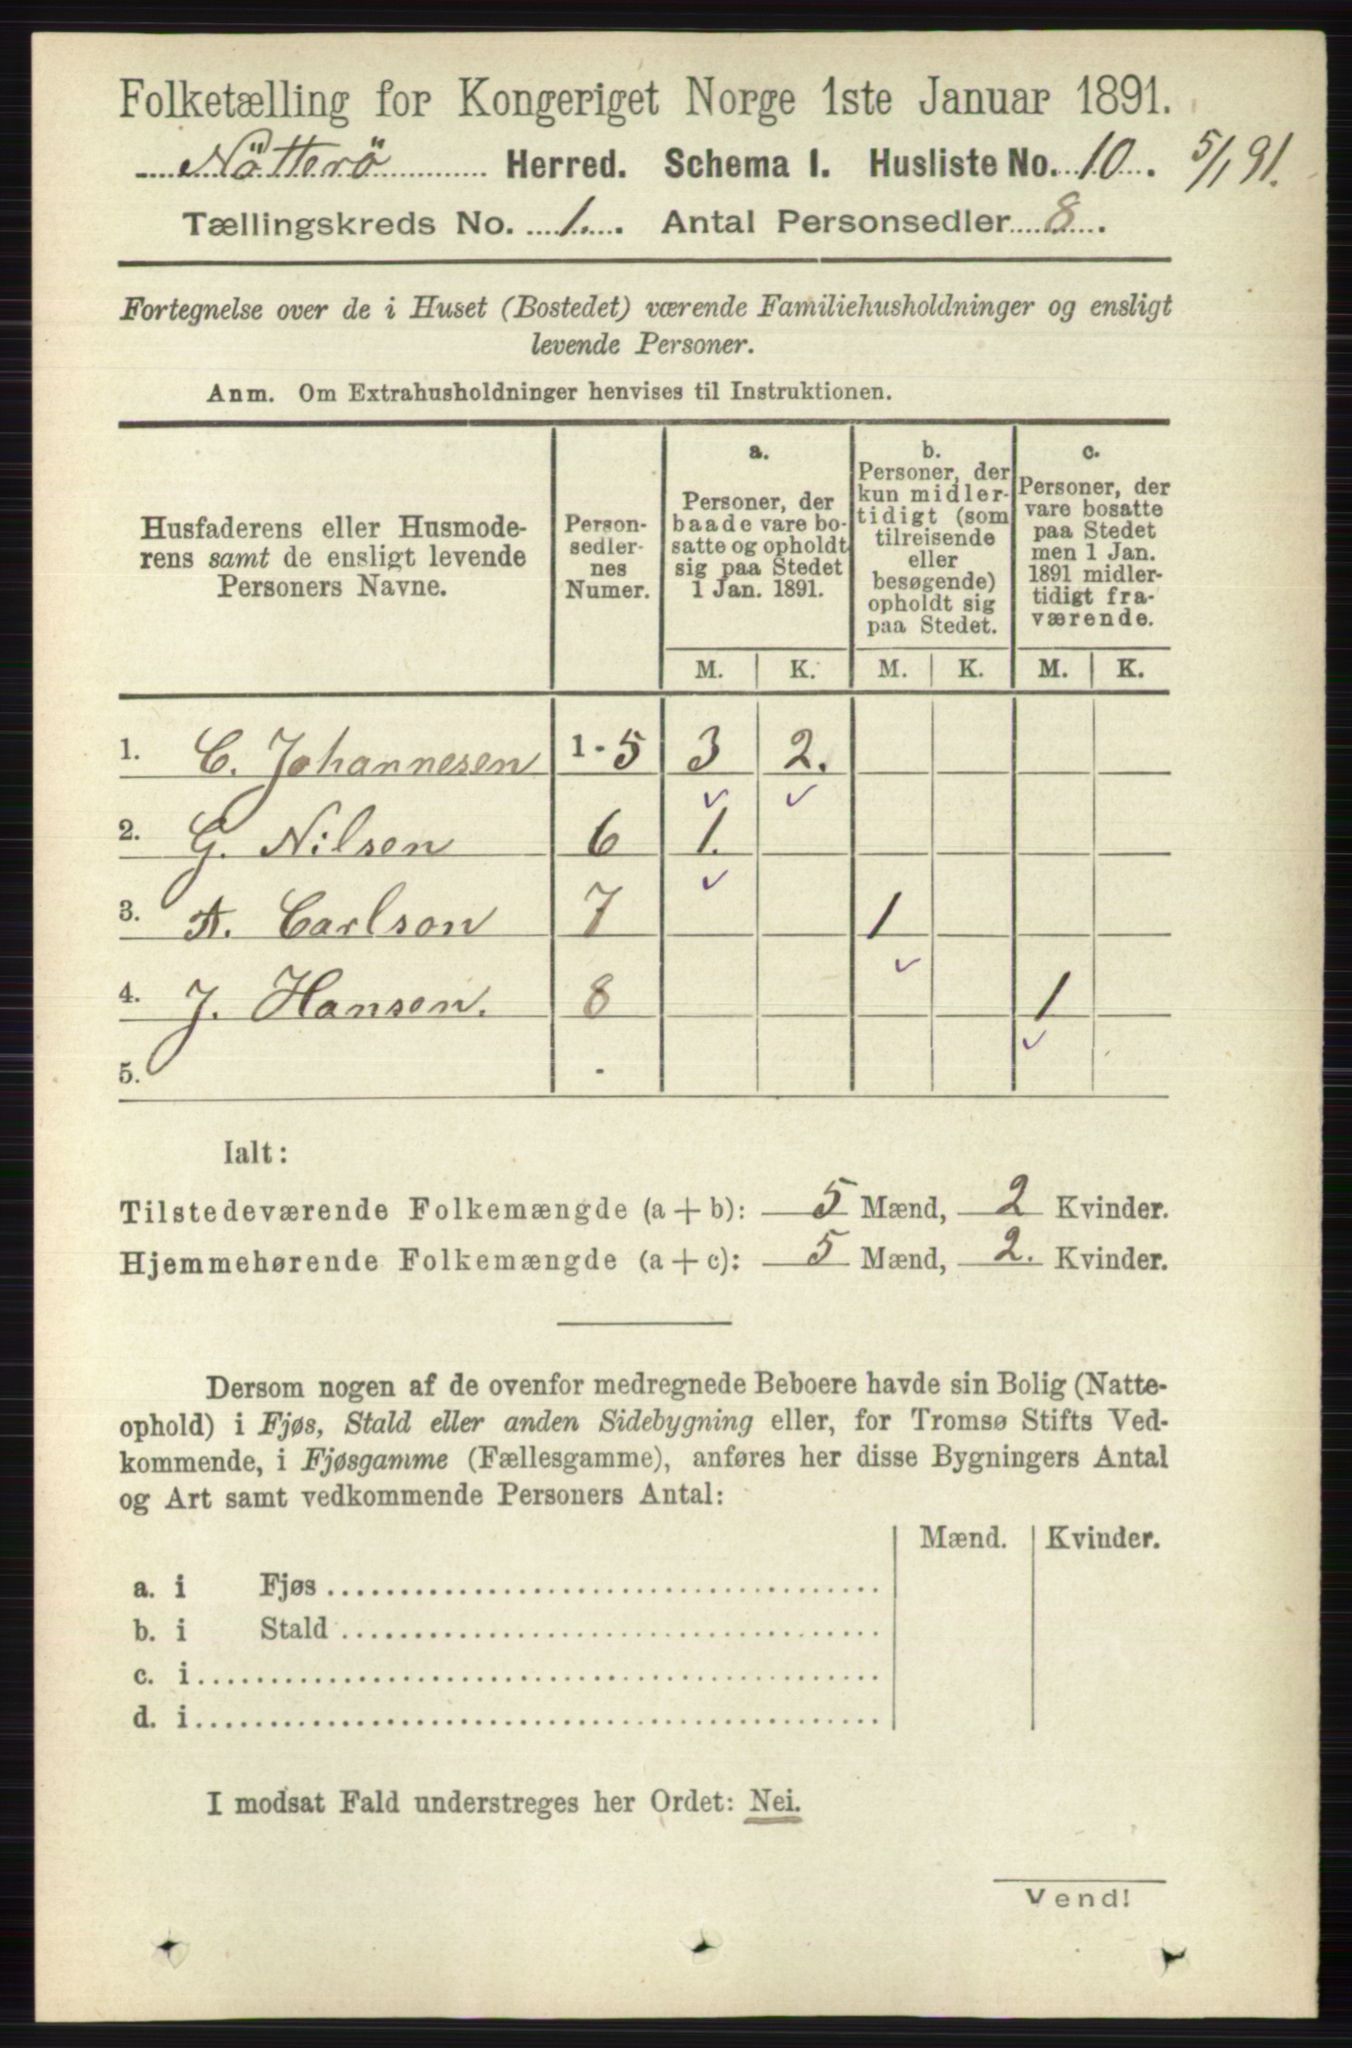 Folketælling for Kongeriget Norge 1ste Januar 1891.
Nötterö Herred. Schema I. Husliste No. 10. 5/1 91.
Tællingskreds No. 1. Antal Personsedler 8.
Fortegnelse over de i Huset (Bostedet) værende Familiehusholdninger og ensligt
levende Personer.
Anm. Om Extrahusholdninger henvises til Instruktionen.
Husfaderens eller Husmode-
rens samt de ensligt levende
Personers Navne.
Person-
sedler-
nes
Numer.
a.
Personer, der
baade vare bo-
satte og opholdt
sig paa Stedet
1 Jan. 1891.
b.
Personer, der
kun midler-
tidigt (som
tilreisende
eller
besøgende)
opholdt sig
paa Stedet.
c.
Personer, der
vare bosatte
paa Stedet
men 1 Jan.
1891 midler-
tidigt fra-
værende.
M. K. M. K. M. K.
1. C. Johannesen 1-5 3 2.
2. G. Nilsen 6 1.
3. A. Carlson 7 1
4. J. Hansen. 8 1
5.
Ialt:
Tilstedeværende Folkemængde (a+b): 5 Mænd, 2 Kvinder.
Hjemmehørende Folkemængde (a+c): 5 Mænd, 2. Kvinder.
Dersom nogen af de ovenfor medregnede Beboere havde sin Bolig (Natte-
ophold) i Fjøs, Stald eller anden Sidebygning eller, for Tromsø Stifts Ved-
kommende, i Fjøsgamme (Fællesgamme), anføres her disse Bygningers Antal
og Art samt vedkommende Personers Antal:
Mænd. Kvinder.
a. i Fjøs
b. i Stald
c. i
d. i
I modsat Fald understreges her Ordet: Nei.
Vend!